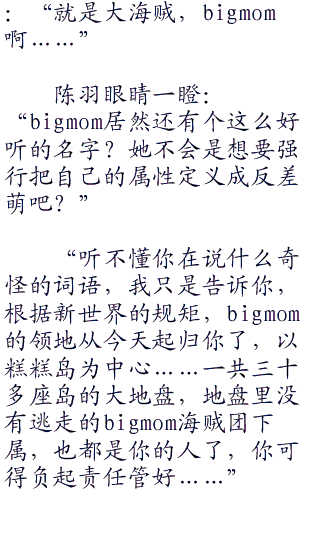 ：“就是大海贼，bigmom
啊……”
陈羽眼睛一瞪：
“bigmom居然还有个这么好
听的名字？她不会是想要强
行把自己的属性定义成反差
萌吧？”
“听不懂你在说什么奇
怪的词语，我只是告诉你，
根据新世界的规矩，bigmom
的领地从今天起归你了，以
糕糕岛为中心……一共三十
多座岛的大地盘，地盘里没
有逃走的bigmom海贼团下
属，也都是你的人了，你可
得负起责任管好……”